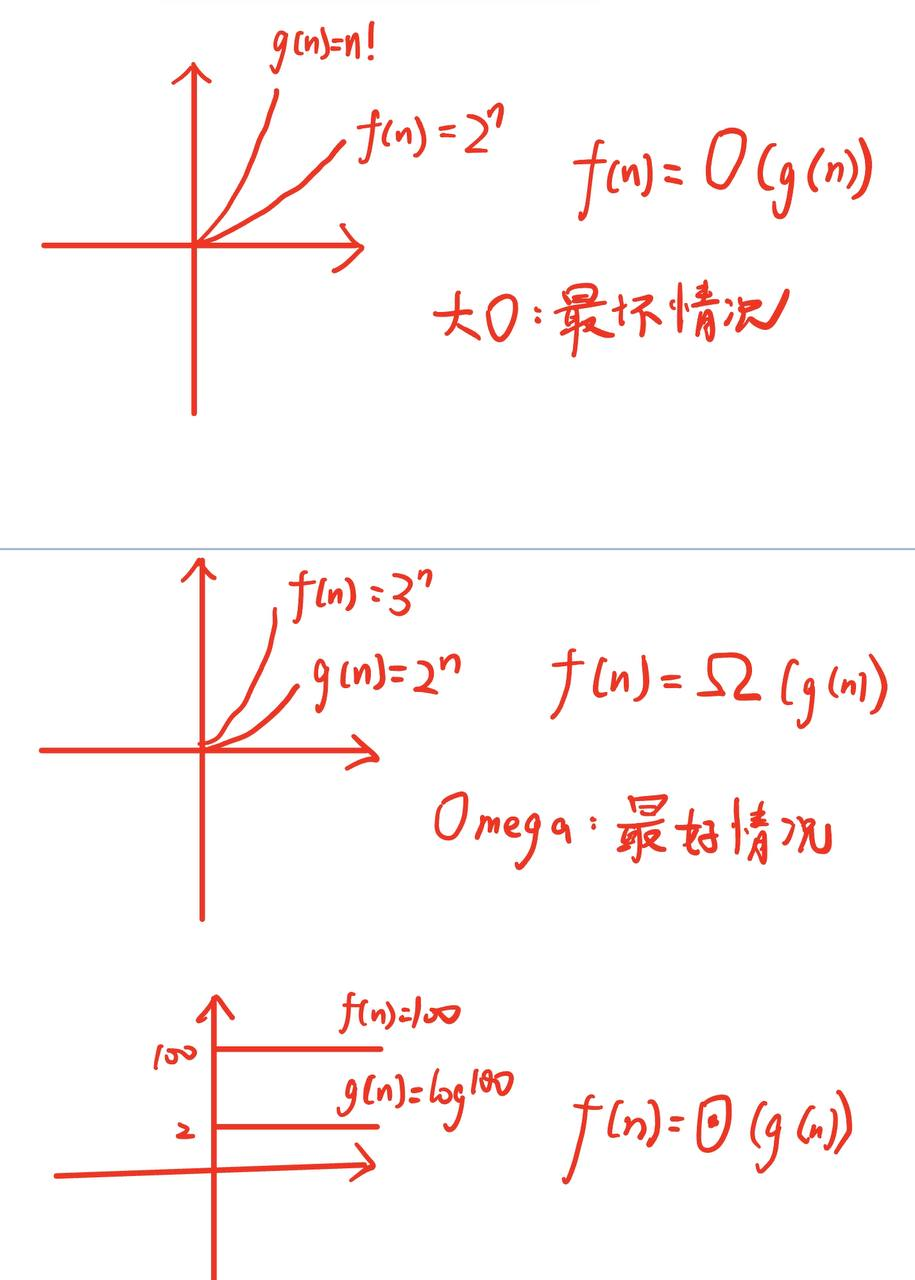 g(n)=n!
f(n)=2ⁿ
f(n)=O(g(n))
大O:最坏情况
f(n)=3ⁿ
g(n)=2ⁿ
f(n)=Ω(g(n))
Omega:最好情况
f(n)=100
100
g(n)=log100
2
f(n)=Θ(g(n))